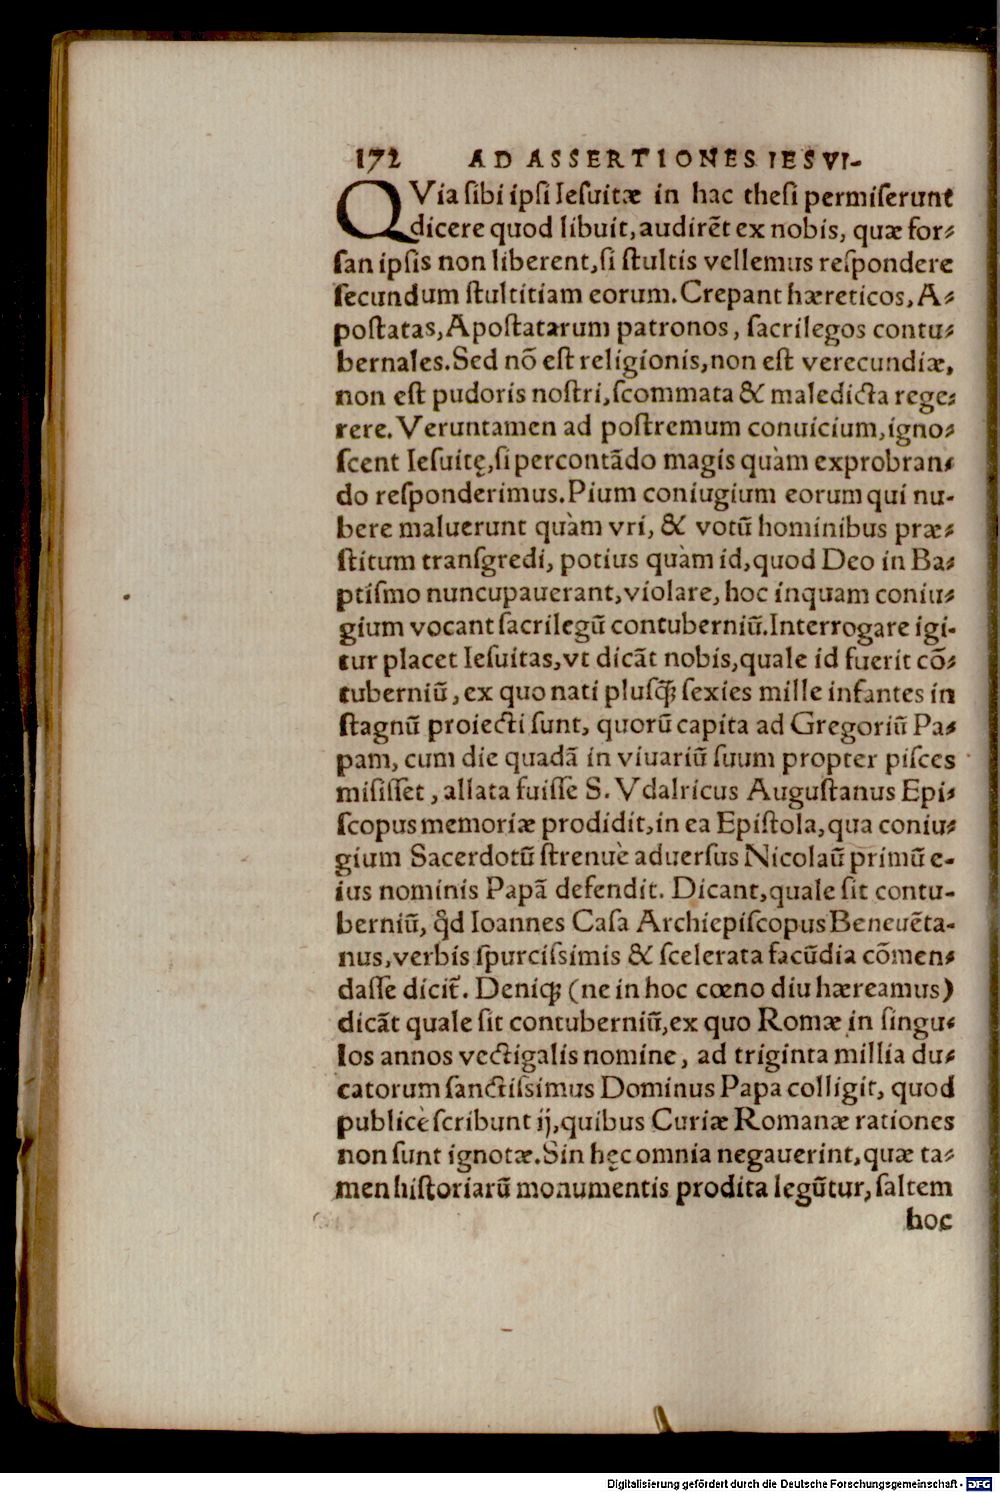 172 AD ASSERTIONES IESVI-
QVia sibi ipsi Iesuitæ in hac thesi permiserunt
dicere quod libuit, audirēt ex nobis, quæ for-
san ipsis non liberent, si stultis vellemus respondere
secundum stultitiam eorum. Crepant hæreticos, A-
postatas, Apostatarum patronos, sacrilegos contu-
bernales. Sed nō est religionis, non est verecundiæ,
non est pudoris nostri, scommata & maledicta rege-
rere. Veruntamen ad postremum conuicium, igno-
scent Iesuitę, si percontādo magis quàm exprobran-
do responderimus. Pium coniugium eorum qui nu-
bere maluerunt quàm vri, & votū hominibus præ-
stitum transgredi, potius quàm id, quod Deo in Ba-
ptismo nuncupauerant, violare, hoc inquam coniu-
gium vocant sacrilegū contuberniū. Interrogare igi-
tur placet Iesuitas, vt dicāt nobis, quale id fuerit cō-
tuberniū, ex quo nati plusq̃ sexies mille infantes in
stagnū proiecti sunt, quorū capita ad Gregoriū Pa-
pam, cum die quadā in viuariū suum propter pisces
misisset, allata fuisse S. Vdalricus Augustanus Epi-
scopus memoriæ prodidit, in ea Epistola, qua coniu-
gium Sacerdotū strenuè aduersus Nicolaū primū e-
ius nominis Papā defendit. Dicant, quale sit contu-
berniū, qd̃ Ioannes Casa Archiepiscopus Beneuēta-
nus, verbis spurcissimis & scelerata facūdia cōmen-
dasse dicit̃. Deniq; (ne in hoc cœno diu hæreamus)
dicāt quale sit contuberniū, ex quo Romæ in singu-
los annos vectigalis nomine, ad triginta millia du-
catorum sanctissimus Dominus Papa colligit, quod
publicè scribunt ij, quibus Curiæ Romanæ rationes
non sunt ignotæ. Sin hęc omnia negauerint, quæ ta-
men historiarū monumentis prodita legūtur, saltem
hoc
Digitalisierung gefördert durch die Deutsche Forschungsgemeinschaft - DFG